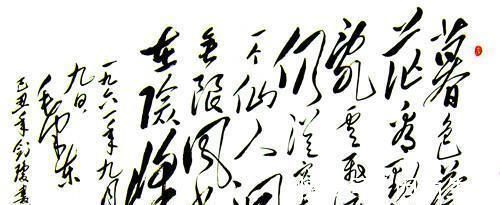 暮色苍
茫看劲
乱云飞渡
仍从容
一个仙人洞
无限风光
在险峰
一九六一年九月
九日
毛泽东
己丑年
书